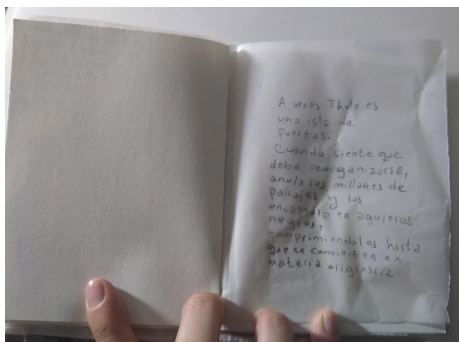 A veces Thule es
una isla de
puertas.
Cuando siente que
debe reorganizarse,
anula sus millones de
paisajes y los
encapsula en agujeros
negros,
comprimiendolas hasta
que se convierten en
materia originaria.